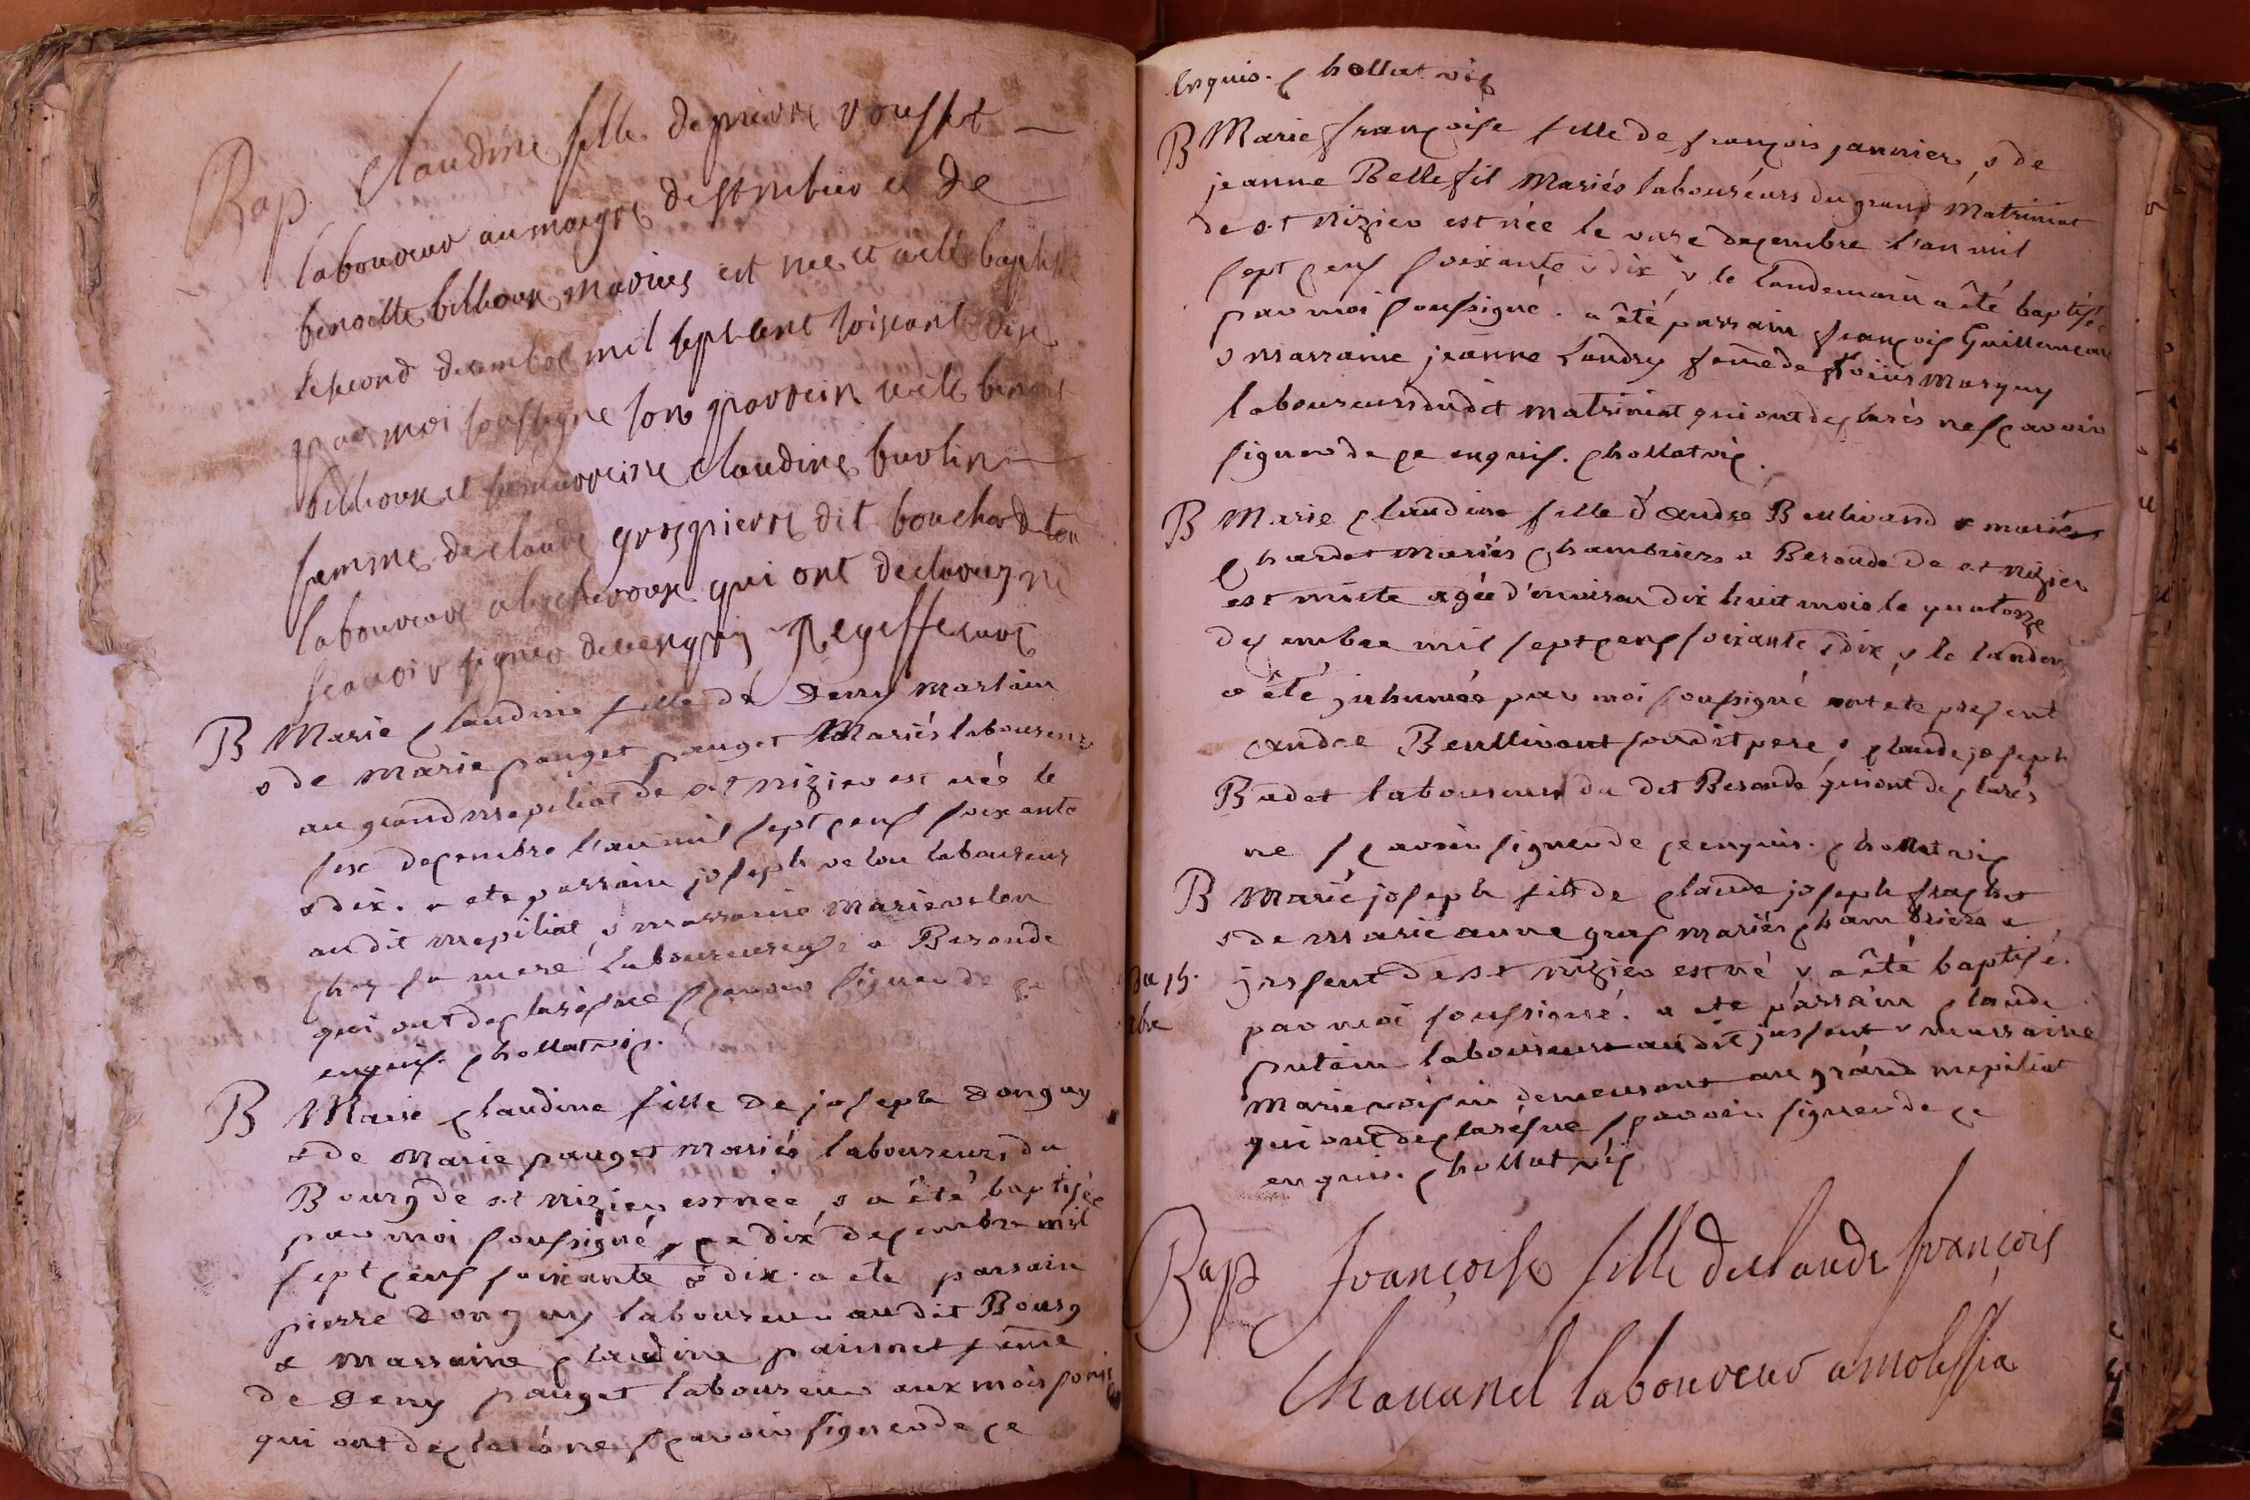 Bap. Claudine fille de pierre rousset
laboureur au maigre de st nizier et de
benoitte billioux mariez est nee et a ete baptisé
le second decembre mil sept cent soixante dix
par moi soussigne son parrein a eté benoit
billioux et sa marreine claudine burtin
femme de claude grospierre dit bouchard tou
laboureur qui ont declarez ne
scavoir signer de ce enquis
B Marie claudine fille de Deny Martain
& de Marie pauget pauget Mariés laboureurs
au grand mepiliat de st nizier est née le
six decembre l'an mil sept cens soixante
& dix. a ete parrain joseph velon laboureur
audit mepiliat & marraine Marie velon
chez sa mere laboureuse a Beronde
qui ont declarés ne scavoir signer de ce
enquis. chollat vic.
B Marie claudine fille de joseph Donguy
& de Marie pauget mariés laboureurs du
Bourg de st nizier est née & a été baptisée
par moi soussigné, ce dix decembre mil
sept cens soixante & dix. a ete parrain
pierre Donguy laboureur audit Bourg
& marraine claudine painnet feme
de Deny pauget laboureur aux mois
qui ont declarés ne scavoir signer de ce
enquis. chollat vic
B Marie françoise fille de françois janvier, & de
jeanne Bellefil Mariés laboureurs du grand Matriniat
de st Nizier est née le onze decembre l'an mil
sept cens soixante & dix & le landemain a été baptisée
par moi soussigné. a été parrain françois Guillemeau
& marraine jeanne Landry feme de
laboureurs dudit matriniat qui ont declarés ne scavoir
signer de ce enquis. chollat vic.
B Marie claudine fille d'andre Beullivand & marie
chardet Mariés chambriers a Beronde de st nizier
est morte agée d'environ dix huit mois le quatorze
decembre mil sept cens soixante & dix, & le landem
a été inhumée par moi soussigné ont ete present
andre Beullivant son dit pere & claude joseph
Badet laboureur du dit Beronde qui ont declarés
ne scavoir signer de ce enquis. chollat vic
B Marie joseph fils de claude joseph frachet
& de marie anne gros mariés chambriers a
du 15. jassent de st nizier est né & a été baptisé.
xbre par moi soussigné. a ete parrain claude
putain laboureur audit jassent & marraine
Marie voisin demeurant au grand mepiliat
qui ont declarés ne scavoir signer de ce
enquis. chollat vic
Bap françoise fille de claude françois
Chavanel laboureur a molissia